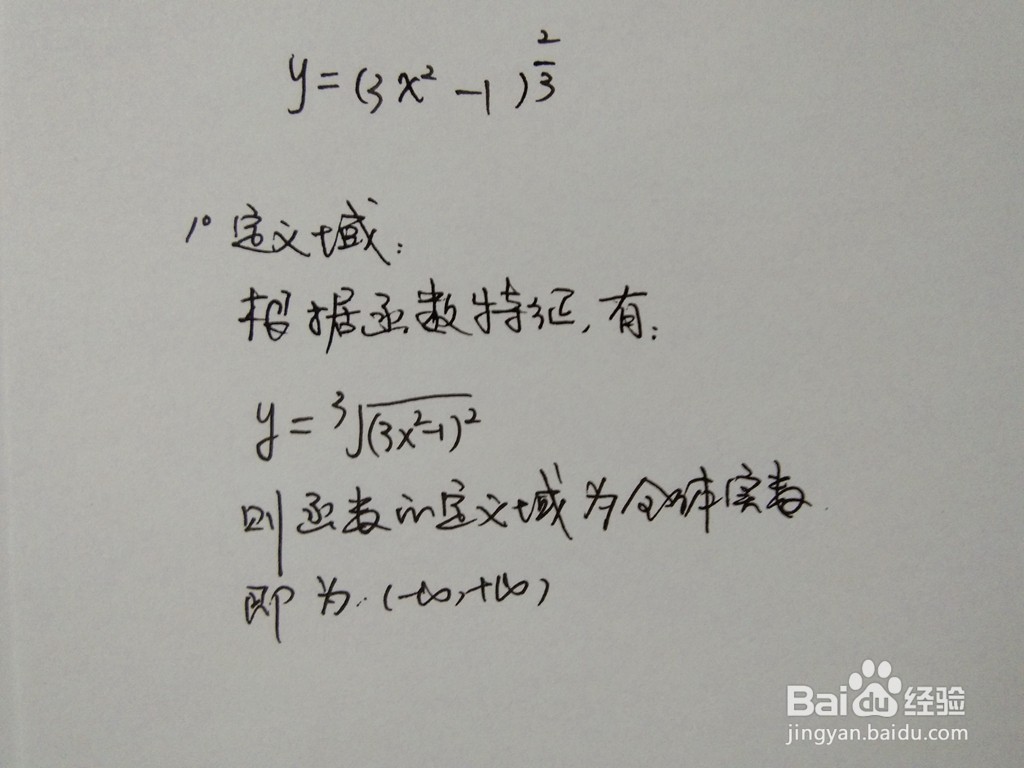 y=(3x²-1)^{\frac{2}{3}}
1° 定义域:
根据函数特征,有:
y=³√(3x²-1)²
则函数的定义域为全体实数.
即为:(-∞,+∞)
Bai du 经验
jingyan.baidu.com